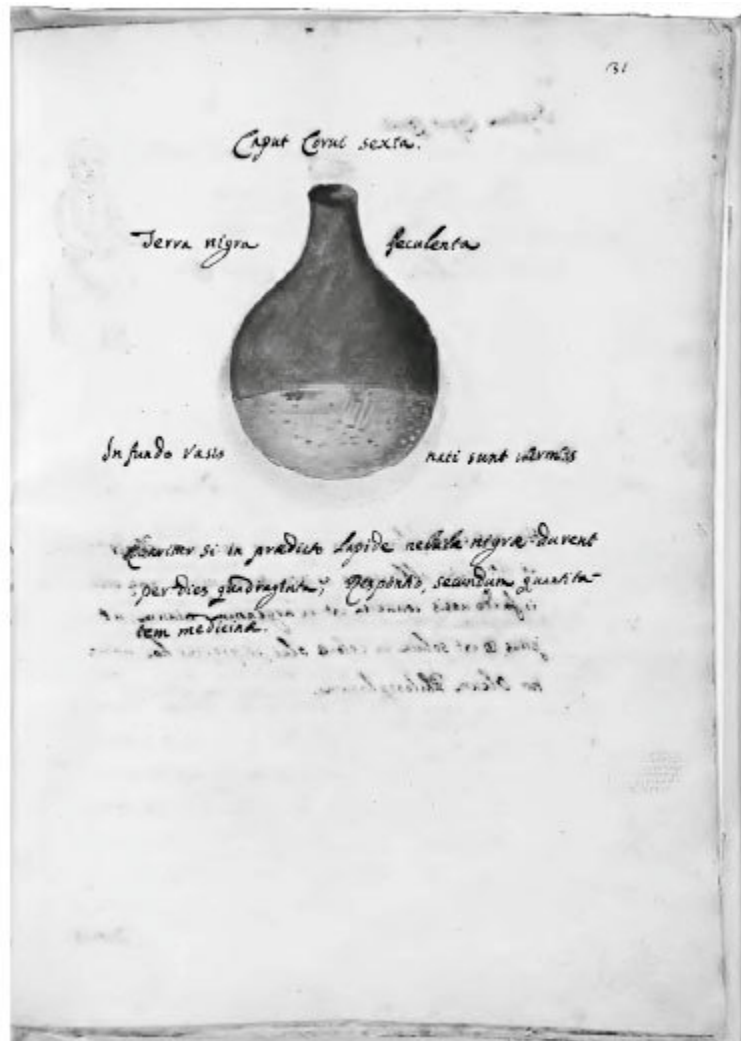 31
Caput Corui sexta.
Terra nigra feculenta
In fundo vasis nati sunt vermes
si in prædicto lapide nebulæ nigræ durent
per dies quadraginta, Responsio, secundum quantita-
tem medicinæ.